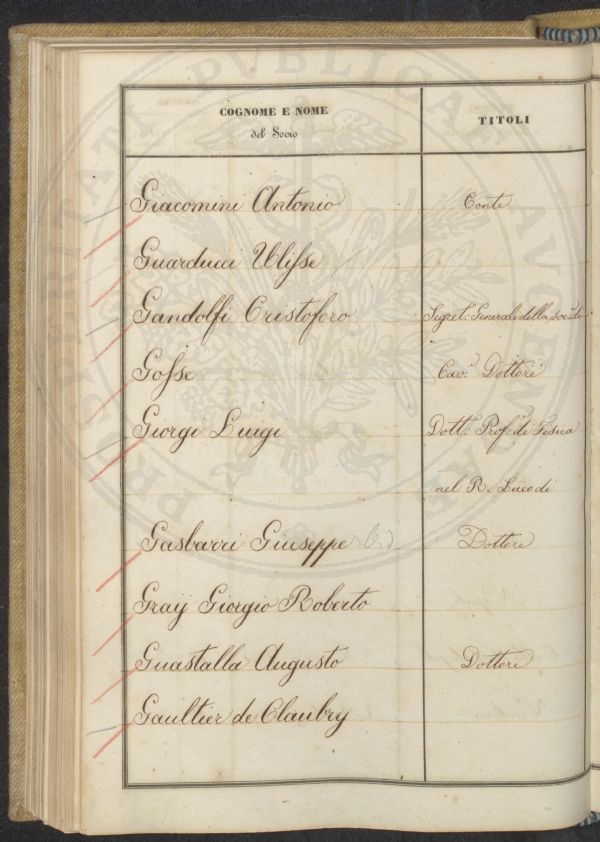 PROSPERITATI PUBLICAE AUGENDAE
COGNOME E NOME
del Socio
TITOLI
Giacomini Antonio Conte
Guarducci Ulisse
Gandolfi Cristoforo Segret: Generale della
Gosse Cav.e Dottore
Giorgi Luigi Dott. Prof. di Fisica
nel R. Liceo di
Gasbarri Giuseppe Dottore
Gray Giorgio Roberto
Guastalla Augusto Dottore
Gaultier de Claubry